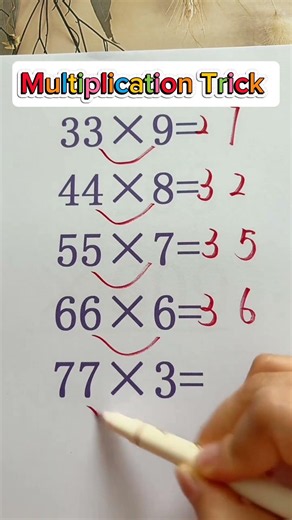 Multiplication Trick
33×9=2 7
44×8=3 2
55×7=3 5
66×6=3 6
77×3=